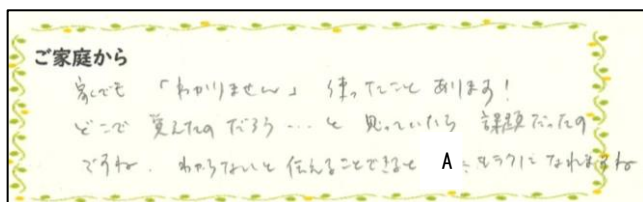 ご家庭から
家でも「わかりません」使ったことあります!
どこで覚えたのだろう…と思っていたら課題だったの
ですね。わからないと伝えることできるとA、もラクになれますね